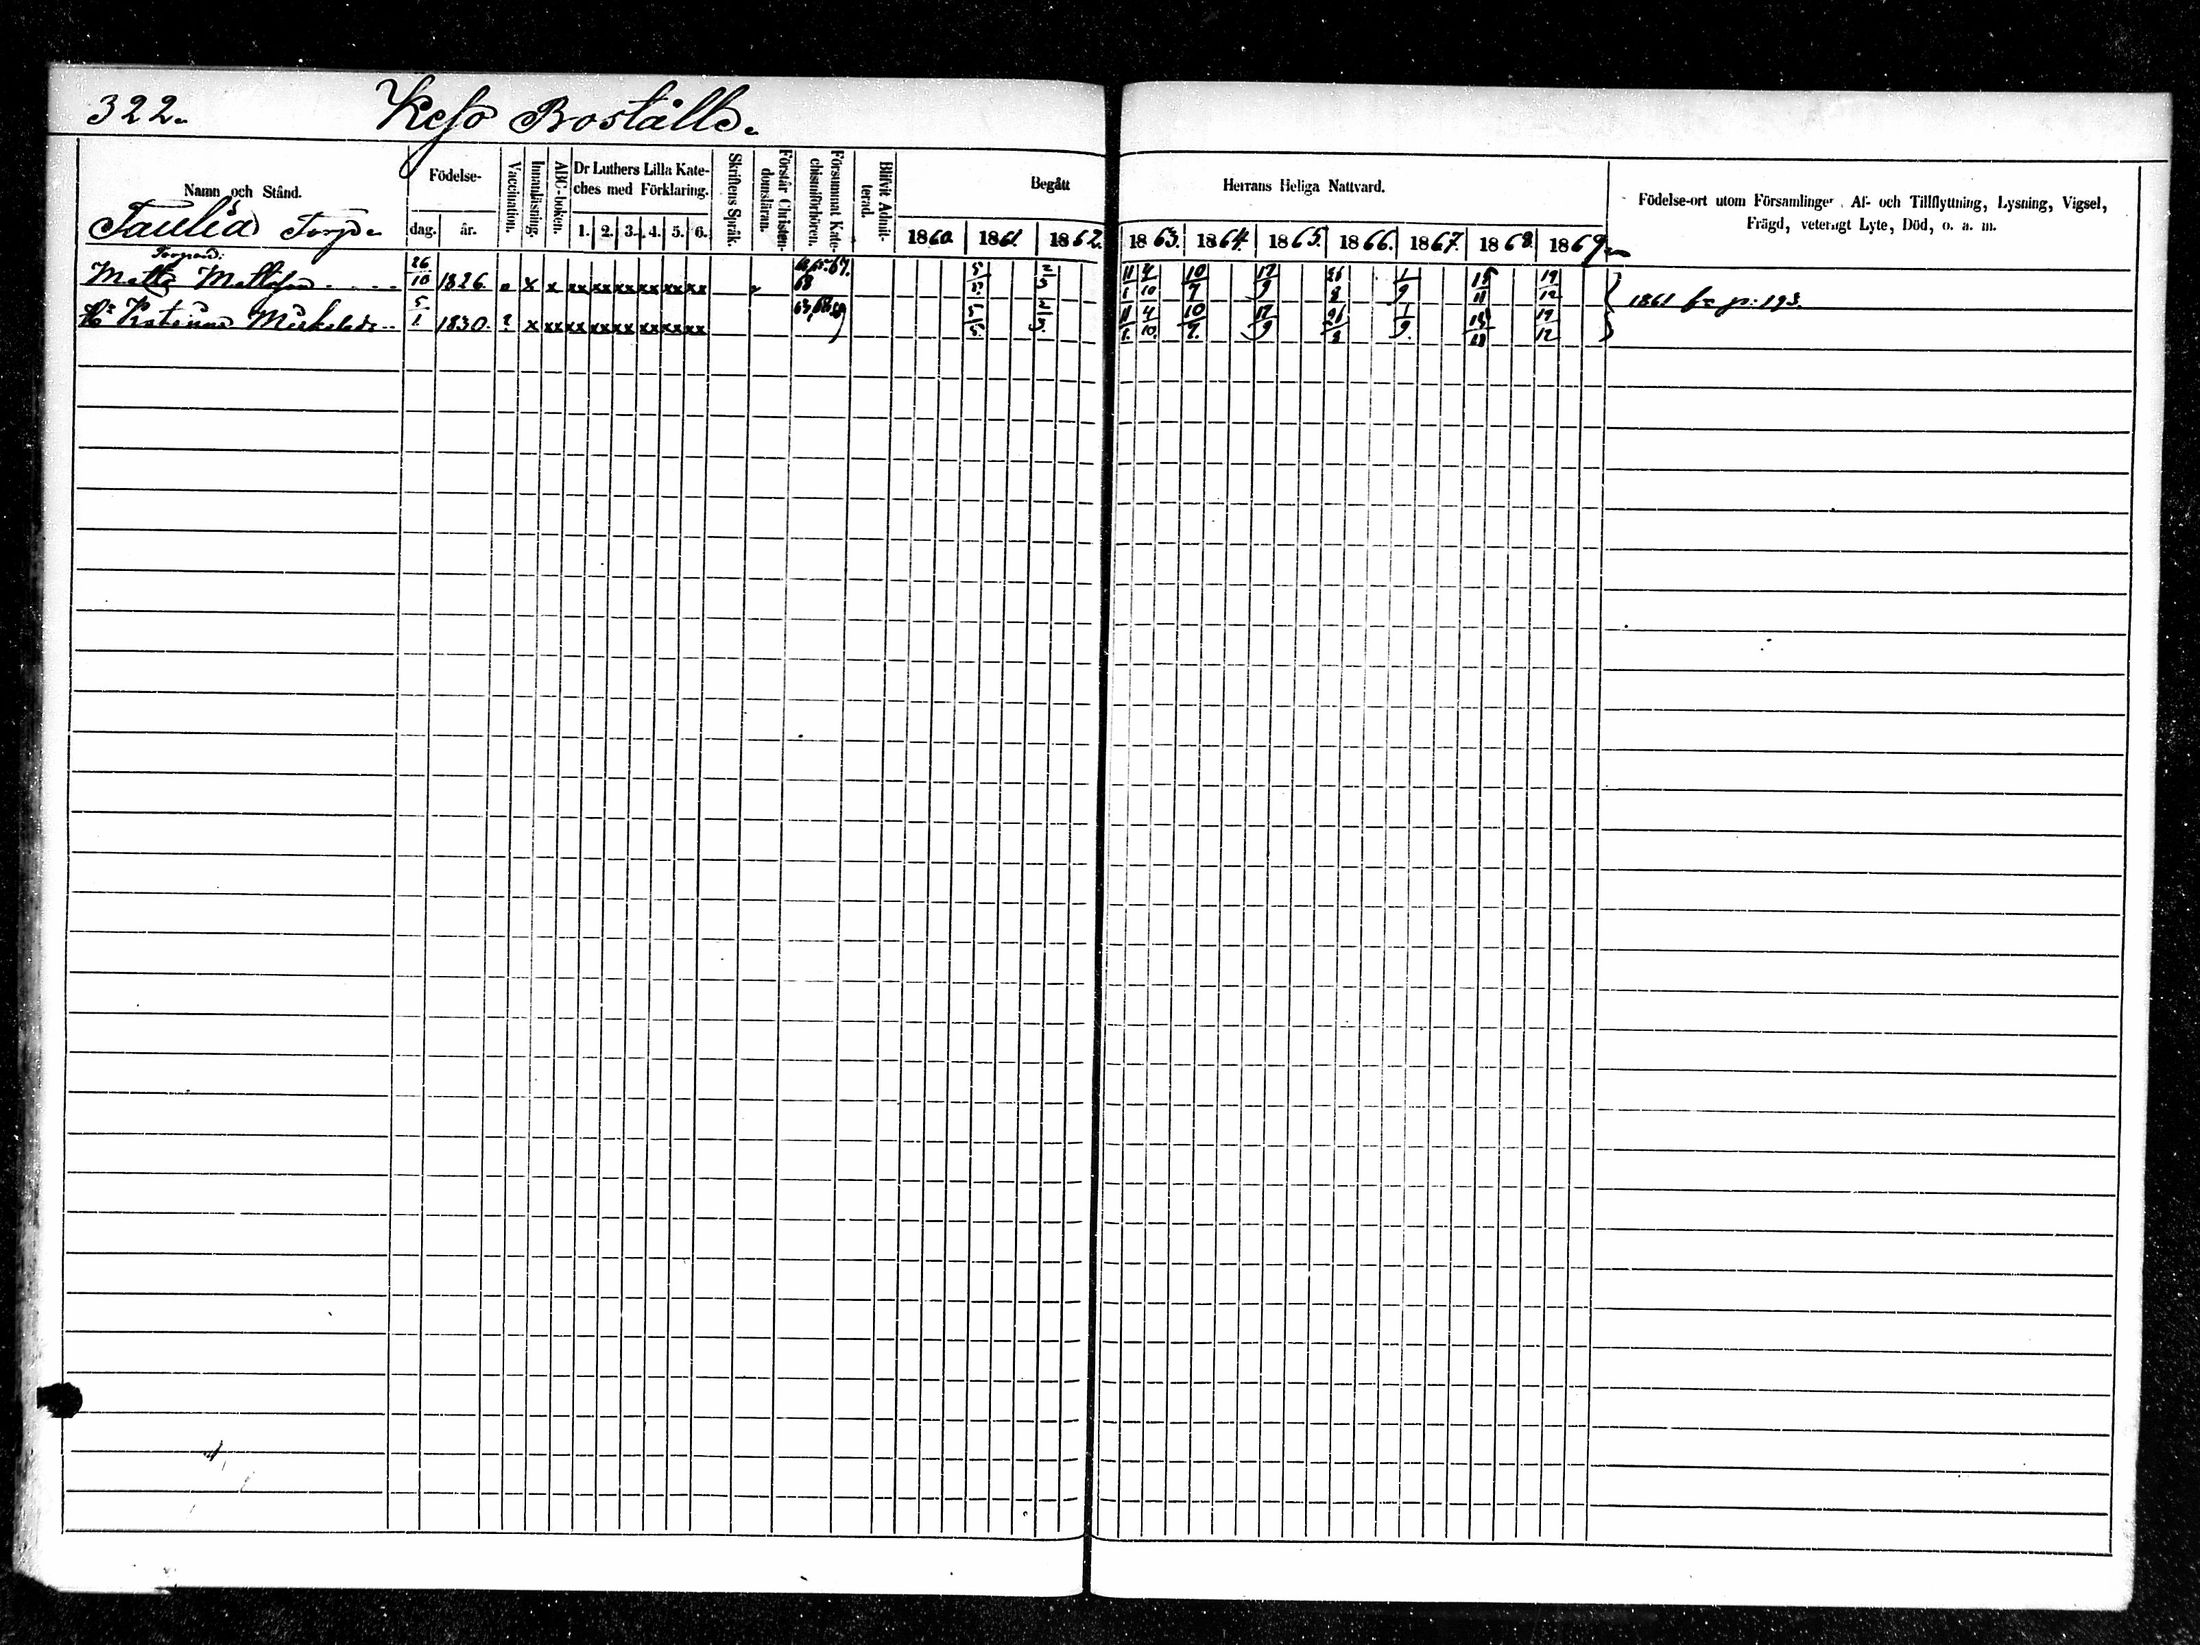 322.
Keso Boställe.
Namn och Stånd.
Födelse-
dag. år.
Vaccination.
Innanläsning.
ABC-boken.
Dr Luthers Lilla Kate-
ches med Förklaring.
1. 2. 3. 4. 5. 6.
Skriftens Språk.
Förstår Christen-
domsläran.
Försummat Kate-
chismiförhören.
Blifvit Admit-
terad.
Begått
Herrans Heliga Nattvard.
1860. 1861. 1862. 1863. 1864. 1865. 1866. 1867. 1868. 1869.
Födelse-ort utom Församlingen, Af- och Tillflyttning, Lysning, Vigsel,
Frägd, veterligt Lyte, Död, o. a. m.
Torp.
Matts Mattsson 26/10 1826. x x xx xx xx xx xx xx 68 2/3 4/10 10/7 17/9 26/8 1/9 19/12
Hu Katarina 5/1. 1830. ? x xx xx xx xx xx xx xx 5/5. 2/3. 4/10. 10/7. 17/9 26/8 1/9. 19/12
1861 fr p: 193.